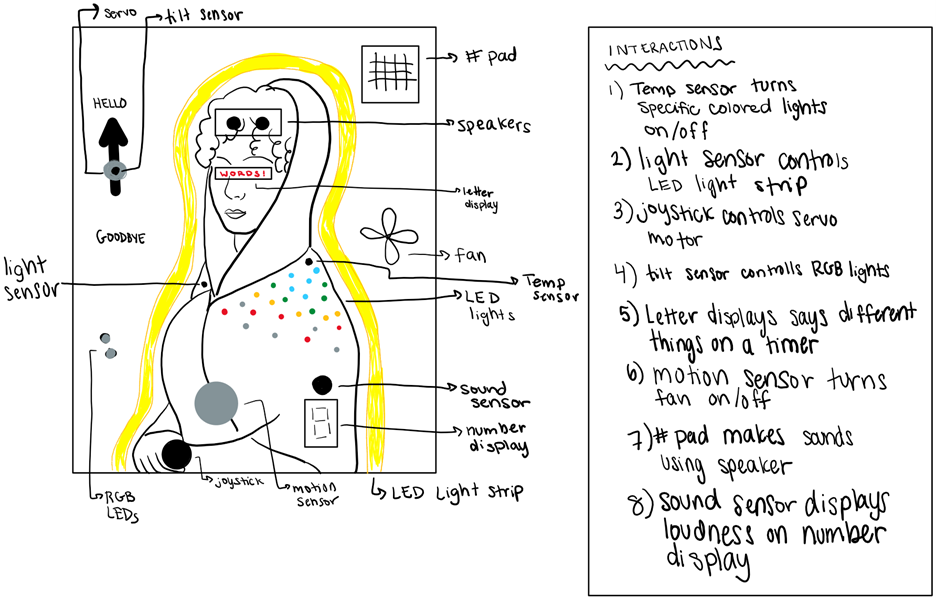 servo
tilt sensor
# pad
HELLO
speakers
WORDS!
letter
display
GOODBYE
fan
light
sensor
Temp
sensor
LED
lights
sound
sensor
number
display
joystick
motion
sensor
LED Light strip
RGB
LEDs
INTERACTIONS
1) Temp sensor turns
specific colored lights
on/off
2) light sensor controls
LED light strip
3) joystick controls servo
motor
4) tilt sensor controlls RGB lights
5) Letter displays says different
things on a timer
6) motion sensor turns
fan on/off
7) # pad makes sounds
using speaker
8) sound sensor displays
loudness on number
display